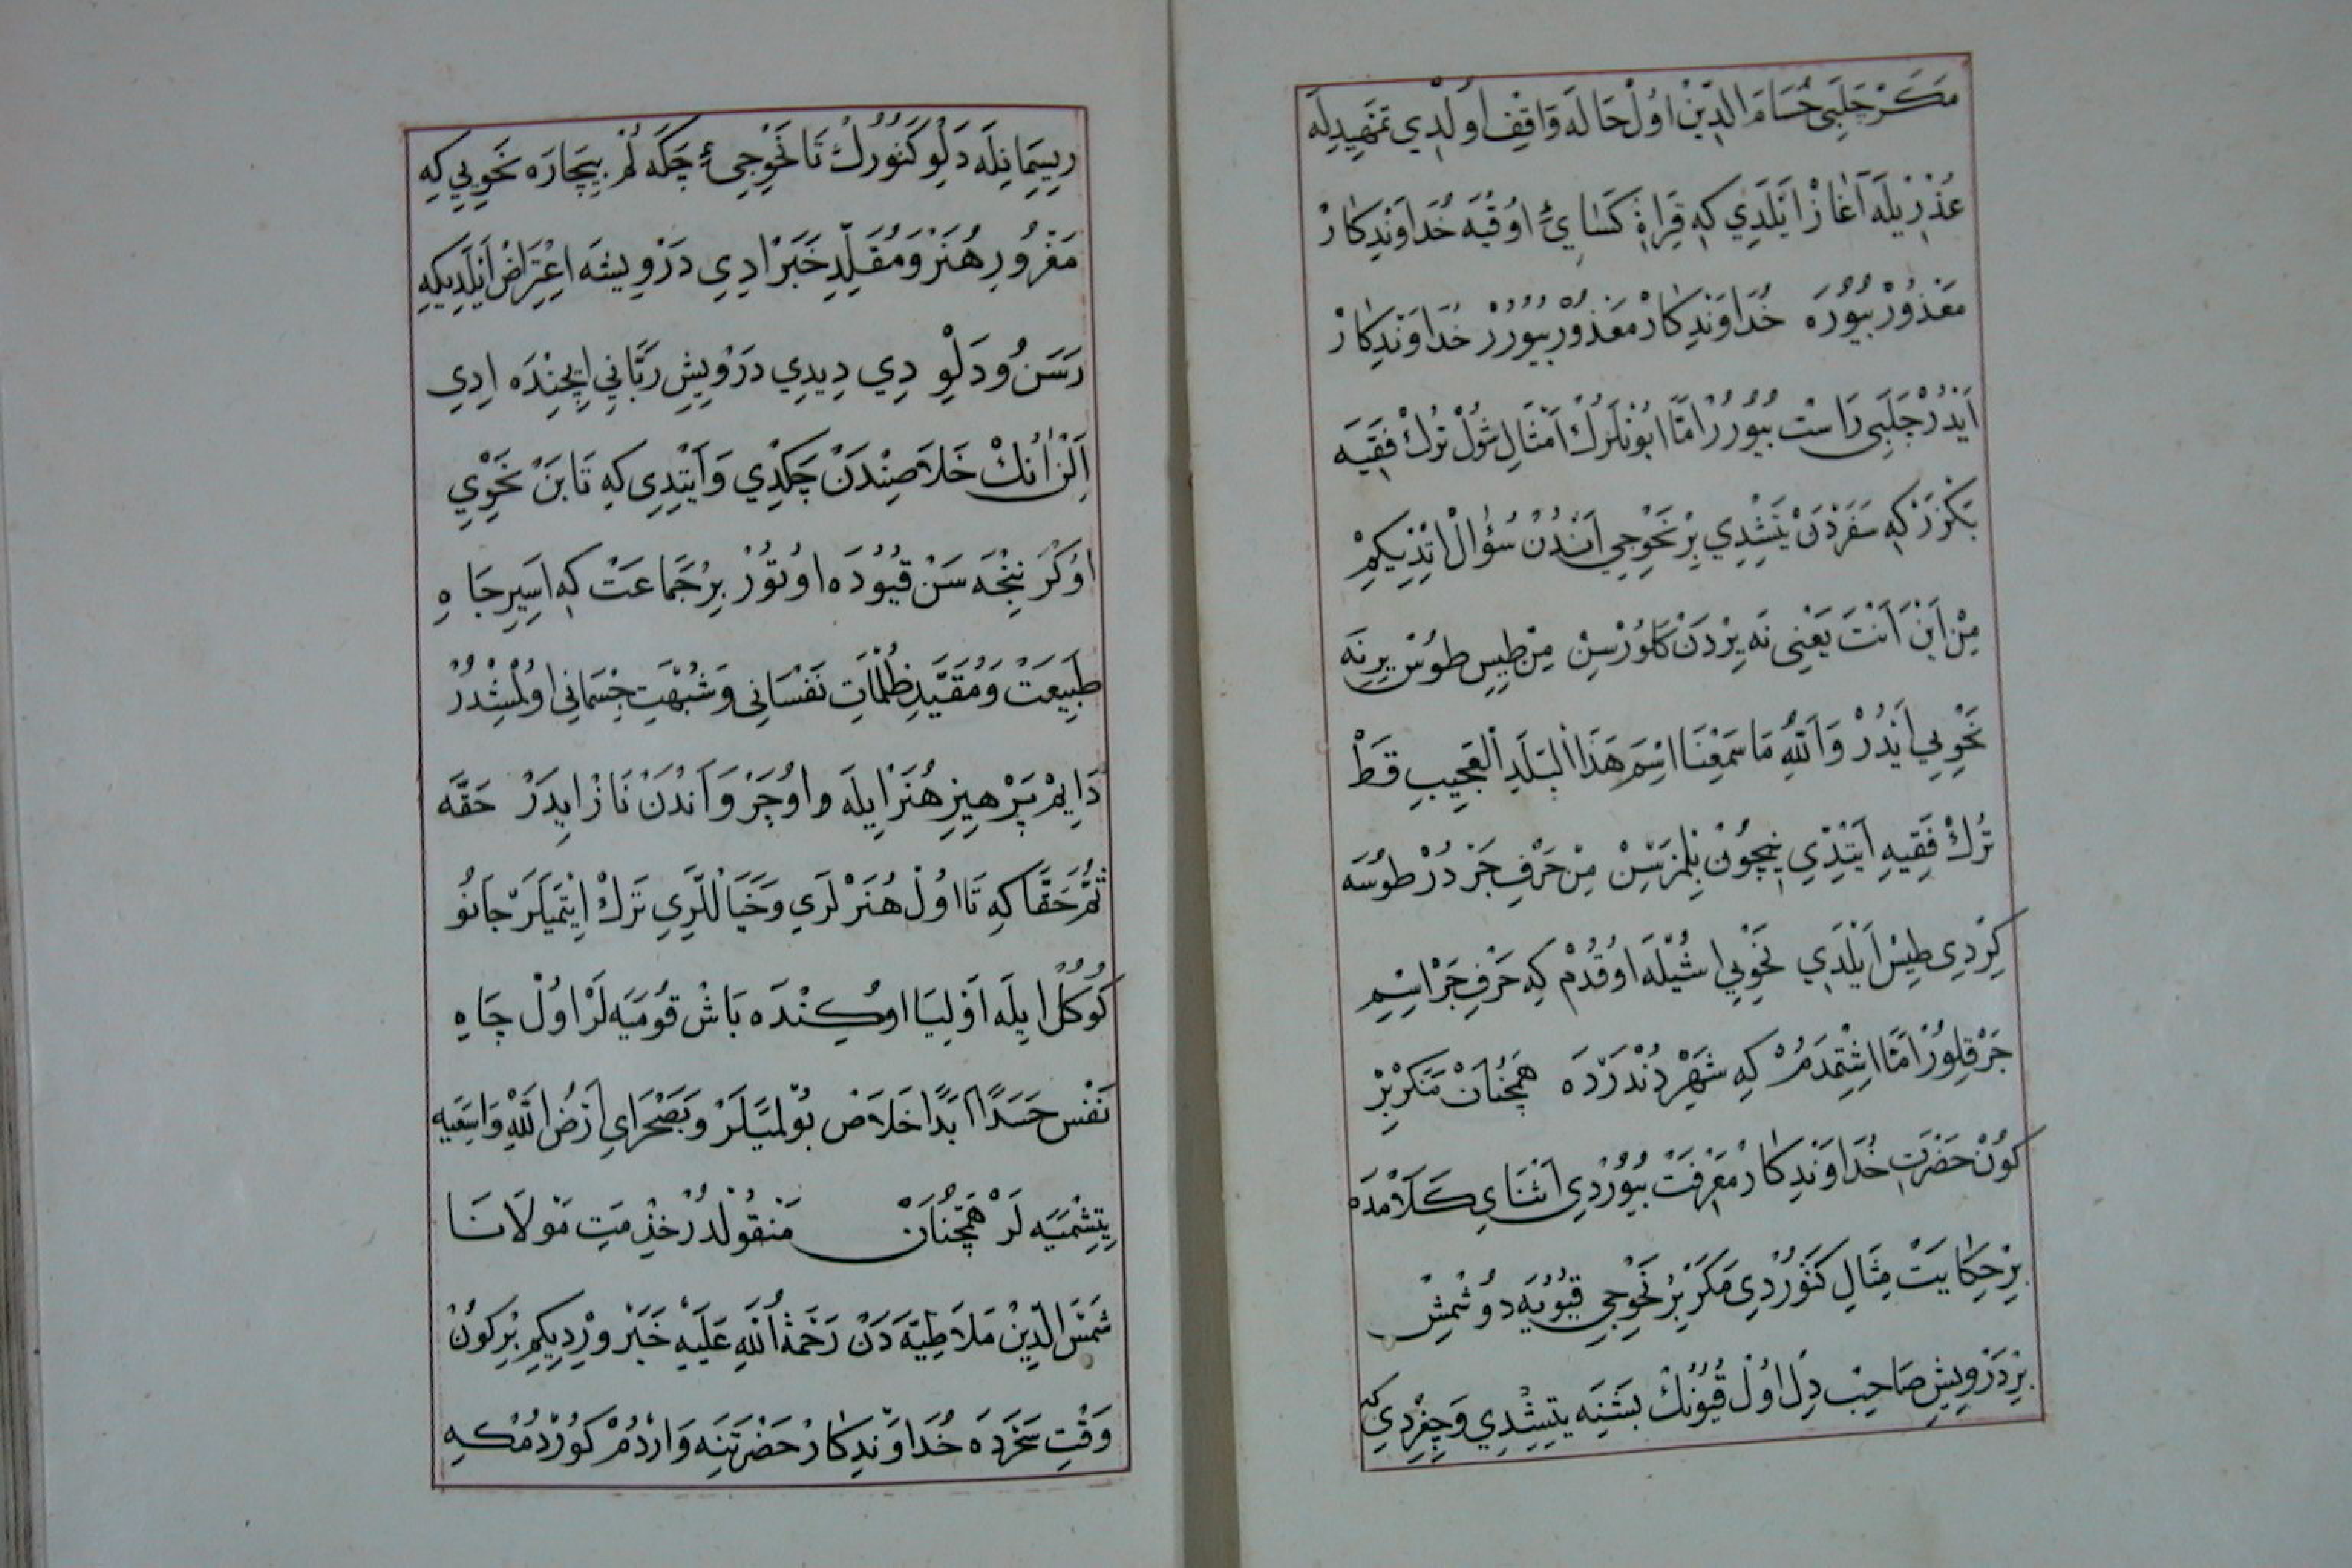 مَكَرْ چَلَبِى حُسَامَ الدِّينْ اوُلْ حَالَه وَاقِفْ اوُلْدِي تَمْهِيدِيلَه
عُذْرِيلَه آغَازْ اَيْلَدِي كِه قِرَاءَةِ كَسَايِئْ اوُقُيَه خُدَاوَنْدِكَارْ
مَعْذُورْ بُيُورَه خُدَاوَنْدِكَارْ مَعْذُورْ بُيُورُرْ خُدَاوَنْدِكَارْ
اَيْدُرْ چَلَبِى رَاسْت بُيُورُرْ اَمَّا بُونْلَرُكْ اَمْثَالِ شُولْ تُرْكْ فَقِيَه
بَكْزَرْ كِه سَفَرْدَنْ يَتِشْدِي بِرْ نَحْوِجِي اَنْدُنْ سُؤَالْ اِتْدِيكِمْ
مِنْ اَيْنَ اَنْتَ يَعْنِى نَه يِرْدَنْ كَلُورْسِنْ مِنْ طِيسِ طُوسْ يِرِنَه
نَحْوِيِي اَيْدُرْ وَاللهِ مَا سَمِعْنَا اسْمَ هَذَا الْبَلَدِ الْعَجِيبِ قَطْ
تُرْكْ فَقِيهِ اَيْتِدِي نِيچُونْ بِلْمَزسِنْ مِنْ حَرْفِ جَرْدُرْ طُوسَه
كِرْدِي طِيسْ اَيْلَدِي نَحْوِيِي اشُيْلَه اوُقُدُمْ كِه حَرْفِ جَرْ اسِمِ
جَرْ قِلُورْ اَمَّا اشِتْمَدُمْ كِه شَهْرِ دُنْدَرَدَه هَمْچُنَانْ مَكَرْ بِرْ
كُونْ حَضْرَتِ خُدَاوَنْدِكَارْ مَعْرِفَتْ بُيُورْدِي اَثْنَايِ كَلَامْدَه
بِرْ حِكَايَتْ مِثَالِ كَتُورْدِي مَكَرْ بِرْ نَحْوِجِي قُيُويَه دُوشْمِشْ
بِرْ دَرْوِيشِ صَاحِبْ دِل اوُلْ قُيُونُكْ بَشْنِه يَتِشْدِي وَچِغِرْدِي كه
رِيسِمَانِيلَه دَلْوِ كَتُورُكْ تَا نَحْوِجِئِ چَكَه لُمْ بِيچَارَه نَحْوِيِي كِه
مَغْرُورِ هُنَرْ وَمُقَلِّدِ خَبَرْ ادِي دَرْوِيشَه اعْتِرَاضْ اَيْلَدِيكِه
رَسَنُ وَدَلْوِ دِي دِيدِي دَرْوِيشِ رَبَّانِي اِيچِنْدَه ادِي
اَلْنِ اُنُكْ خَلَاصِنْدَنْ چَكْدِي وَاَيْتِدِي كِه تَا بَنْ نَحْوِيِي
اوُكْرَنِنْجَه سَنْ قُيُودَه اوُتُورْ بِرْ جَمَاعَتْ كِه اسِيرِ چَاهِ
طَبِيعَتْ وَمُقَيَّدِ ظُلُمَاتِ نَفْسَانِى وَشُبْهَتِ جِسْمَانِي اوُلْمِشْدُرْ
دَايِمْ پَرْهِيزِ هُنَرْ ايِلَه واوُچَرْ وَاَنْدَنْ نَازْ ايِدَرْ حَقَّه
ثُمَّ حَقَّا كِه تَا اوُلْ هُنَرْلَرِي وَخَيَاللَّرِي تَرْكْ اِيْتْمَيَلَرْ جَانُو
كُوكُلْ ايِلَه اَوْلِيَا اوُكِنْدَه بَاشْ قُومَيَه لَرْ اوُلْ چَاهِ
نَفْسِ حَسَدًا اَبَدًا خَلَاصْ بُولْمَيَلَرْ وَبَصَحْرَايِ اَرْضُ اللهِ وَاسِعَيِه
يِتِشْمَيَه لَرْ هَمْچُنَانْ مَنْقُولْدُرْ خِذْمَتِ مَوْلَانَا
شَمْسَ الدِّينْ مَلَاطِيَّه دَنْ رَحْمَةُ اللهِ عَلَيْهِ خَبَرْ وِرْدِيكِمْ بْرِ كُونْ
وَقْتِ سَحَرْدَه خُدَاوَنْدِكَارْ حَضْرَتِنَه وَارْدُمْ كُورْدُمْكِه